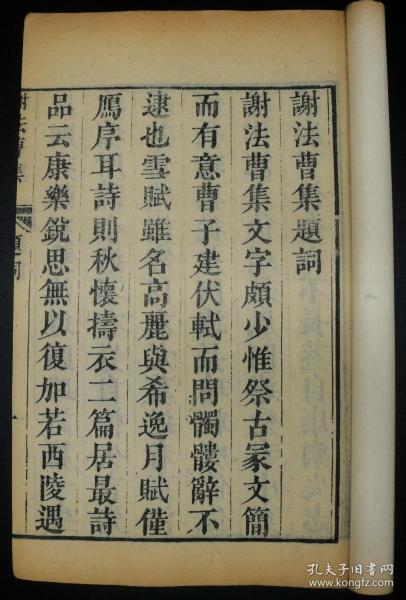 謝法曹集題詞
謝法曹集文字頗少惟祭古冢文簡
而有意曹子建伏軾而問髑髏辭不
逮也雪賦雖名高麗與希逸月賦僅
鴈序耳詩則秋懷擣衣二篇居最詩
品云康樂銳思無以復加若西陵遇
謝法曹集
題詞
一
孔夫子旧书网
www.kongfz.com